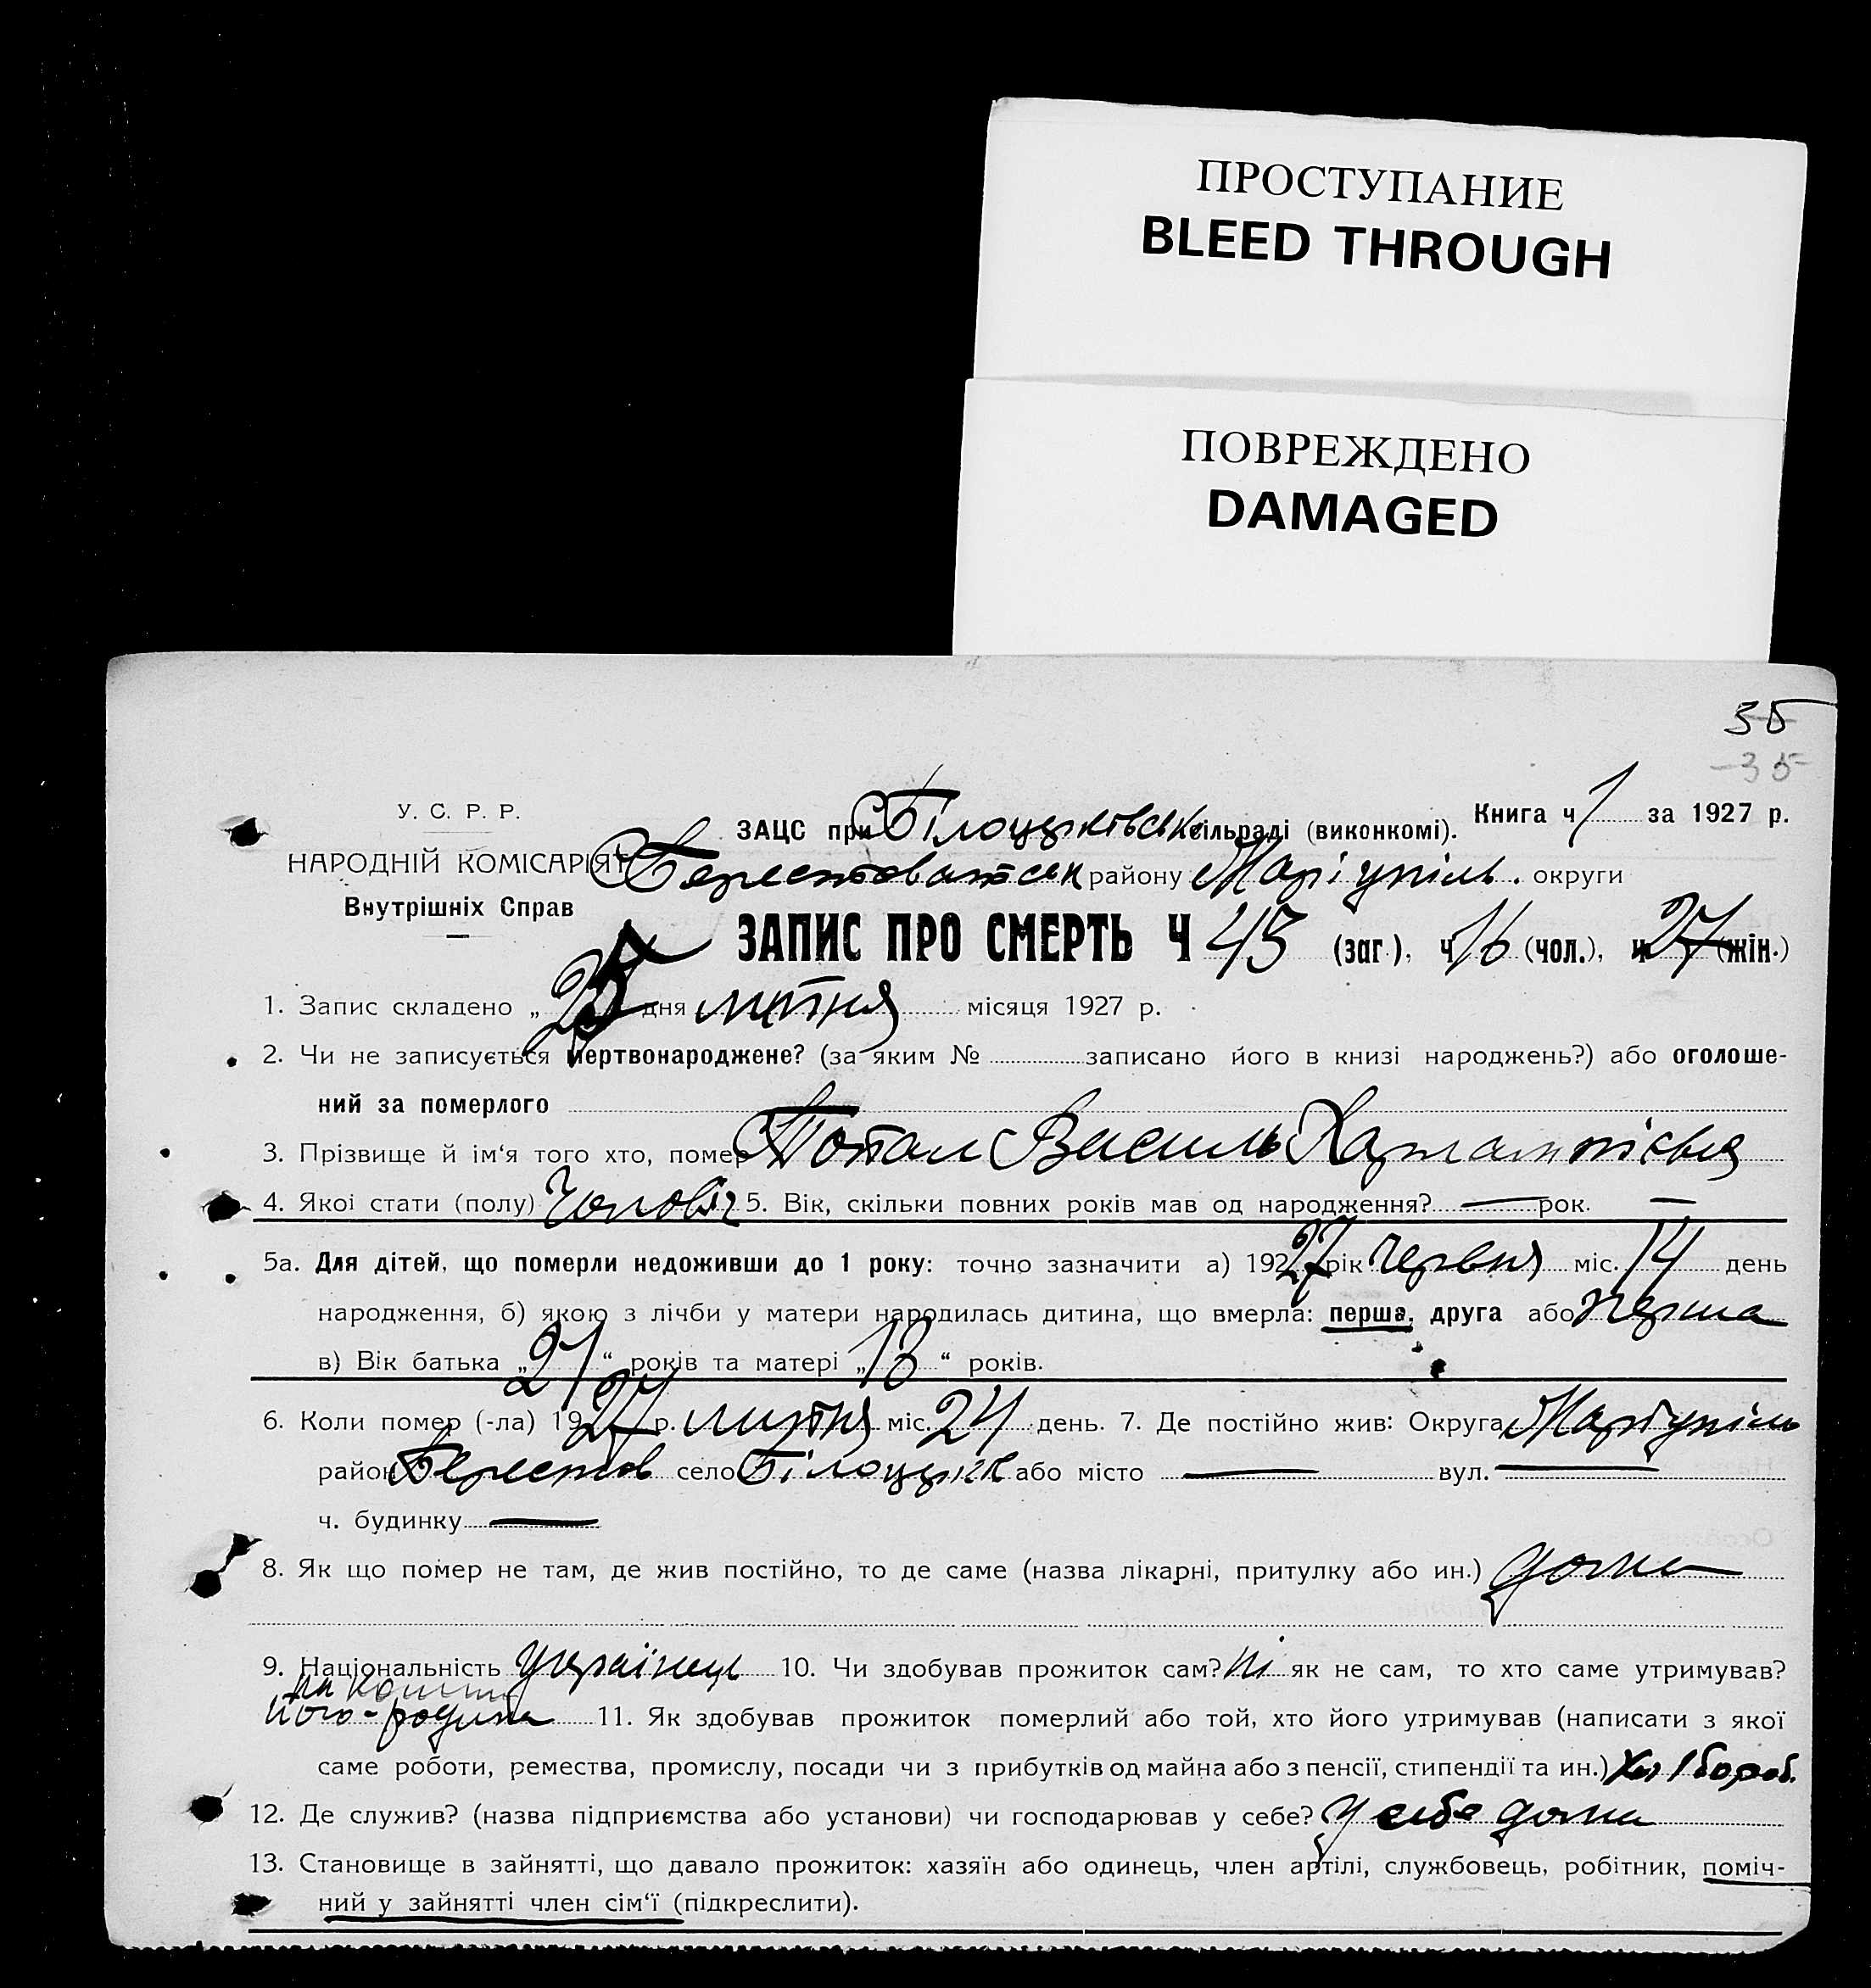 ПРОСТУПАНИЕ
BLEED THROUGH
ПОВРЕЖДЕНО
DAMAGED
35
35
У. С. Р. Р.
ЗАЦС при Білоцерківськ сільраді (виконкомі). Книга ч 1 за 1927 р.
НАРОДНІЙ КОМІСАРІЯТ Берестоватськ району Маріупіль. округи
Внутрішніх Справ
ЗАПИС ПРО СМЕРТЬ Ч 45 (заг.), ч 16 (чол.), ч 27 (жін.)
1. Запис складено „25 дня лютня місяця 1927 р.
2. Чи не записується мертвонароджене? (за яким № записано його в книзі народжень?) або оголоше-
ний за померлого
3. Прізвище й ім‘я того хто, помер Топал Василь
4. Якої стати (полу) Чоловіч 5. Вік, скільки повних років мав од народження? — рок. —
5а. Для дітей, що померли недоживши до 1 року: точно зазначити а) 1927 рік червня міс. 14 день
народження, б) якою з лічби у матери народилась дитина, що вмерла: перша, друга або перша
в) Вік батька „21“ років та матері „18“ років.
6. Коли помер (-ла) 1927 р. лютня міс. 24 день. 7. Де постійно жив: Округа Маріупіль
район Берестов село Білоцерк або місто — вул. —
ч. будинку —
8. Як що помер не там, де жив постійно, то де саме (назва лікарні, притулку або ин.) дома
9. Національність українець 10. Чи здобував прожиток сам? ні як не сам, то хто саме утримував?
на кошти
його-родина 11. Як здобував прожиток померлий або той, хто його утримував (написати з якої
саме роботи, ремества, промислу, посади чи з прибутків од майна або з пенсії, стипендії та ин.) Хлібороб.
12. Де служив? (назва підприємства або установи) чи господарював у себе? У себе дома
13. Становище в зайнятті, що давало прожиток: хазяїн або одинець, член артілі, службовець, робітник, поміч-
ний у зайнятті член сім‘ї (підкреслити).